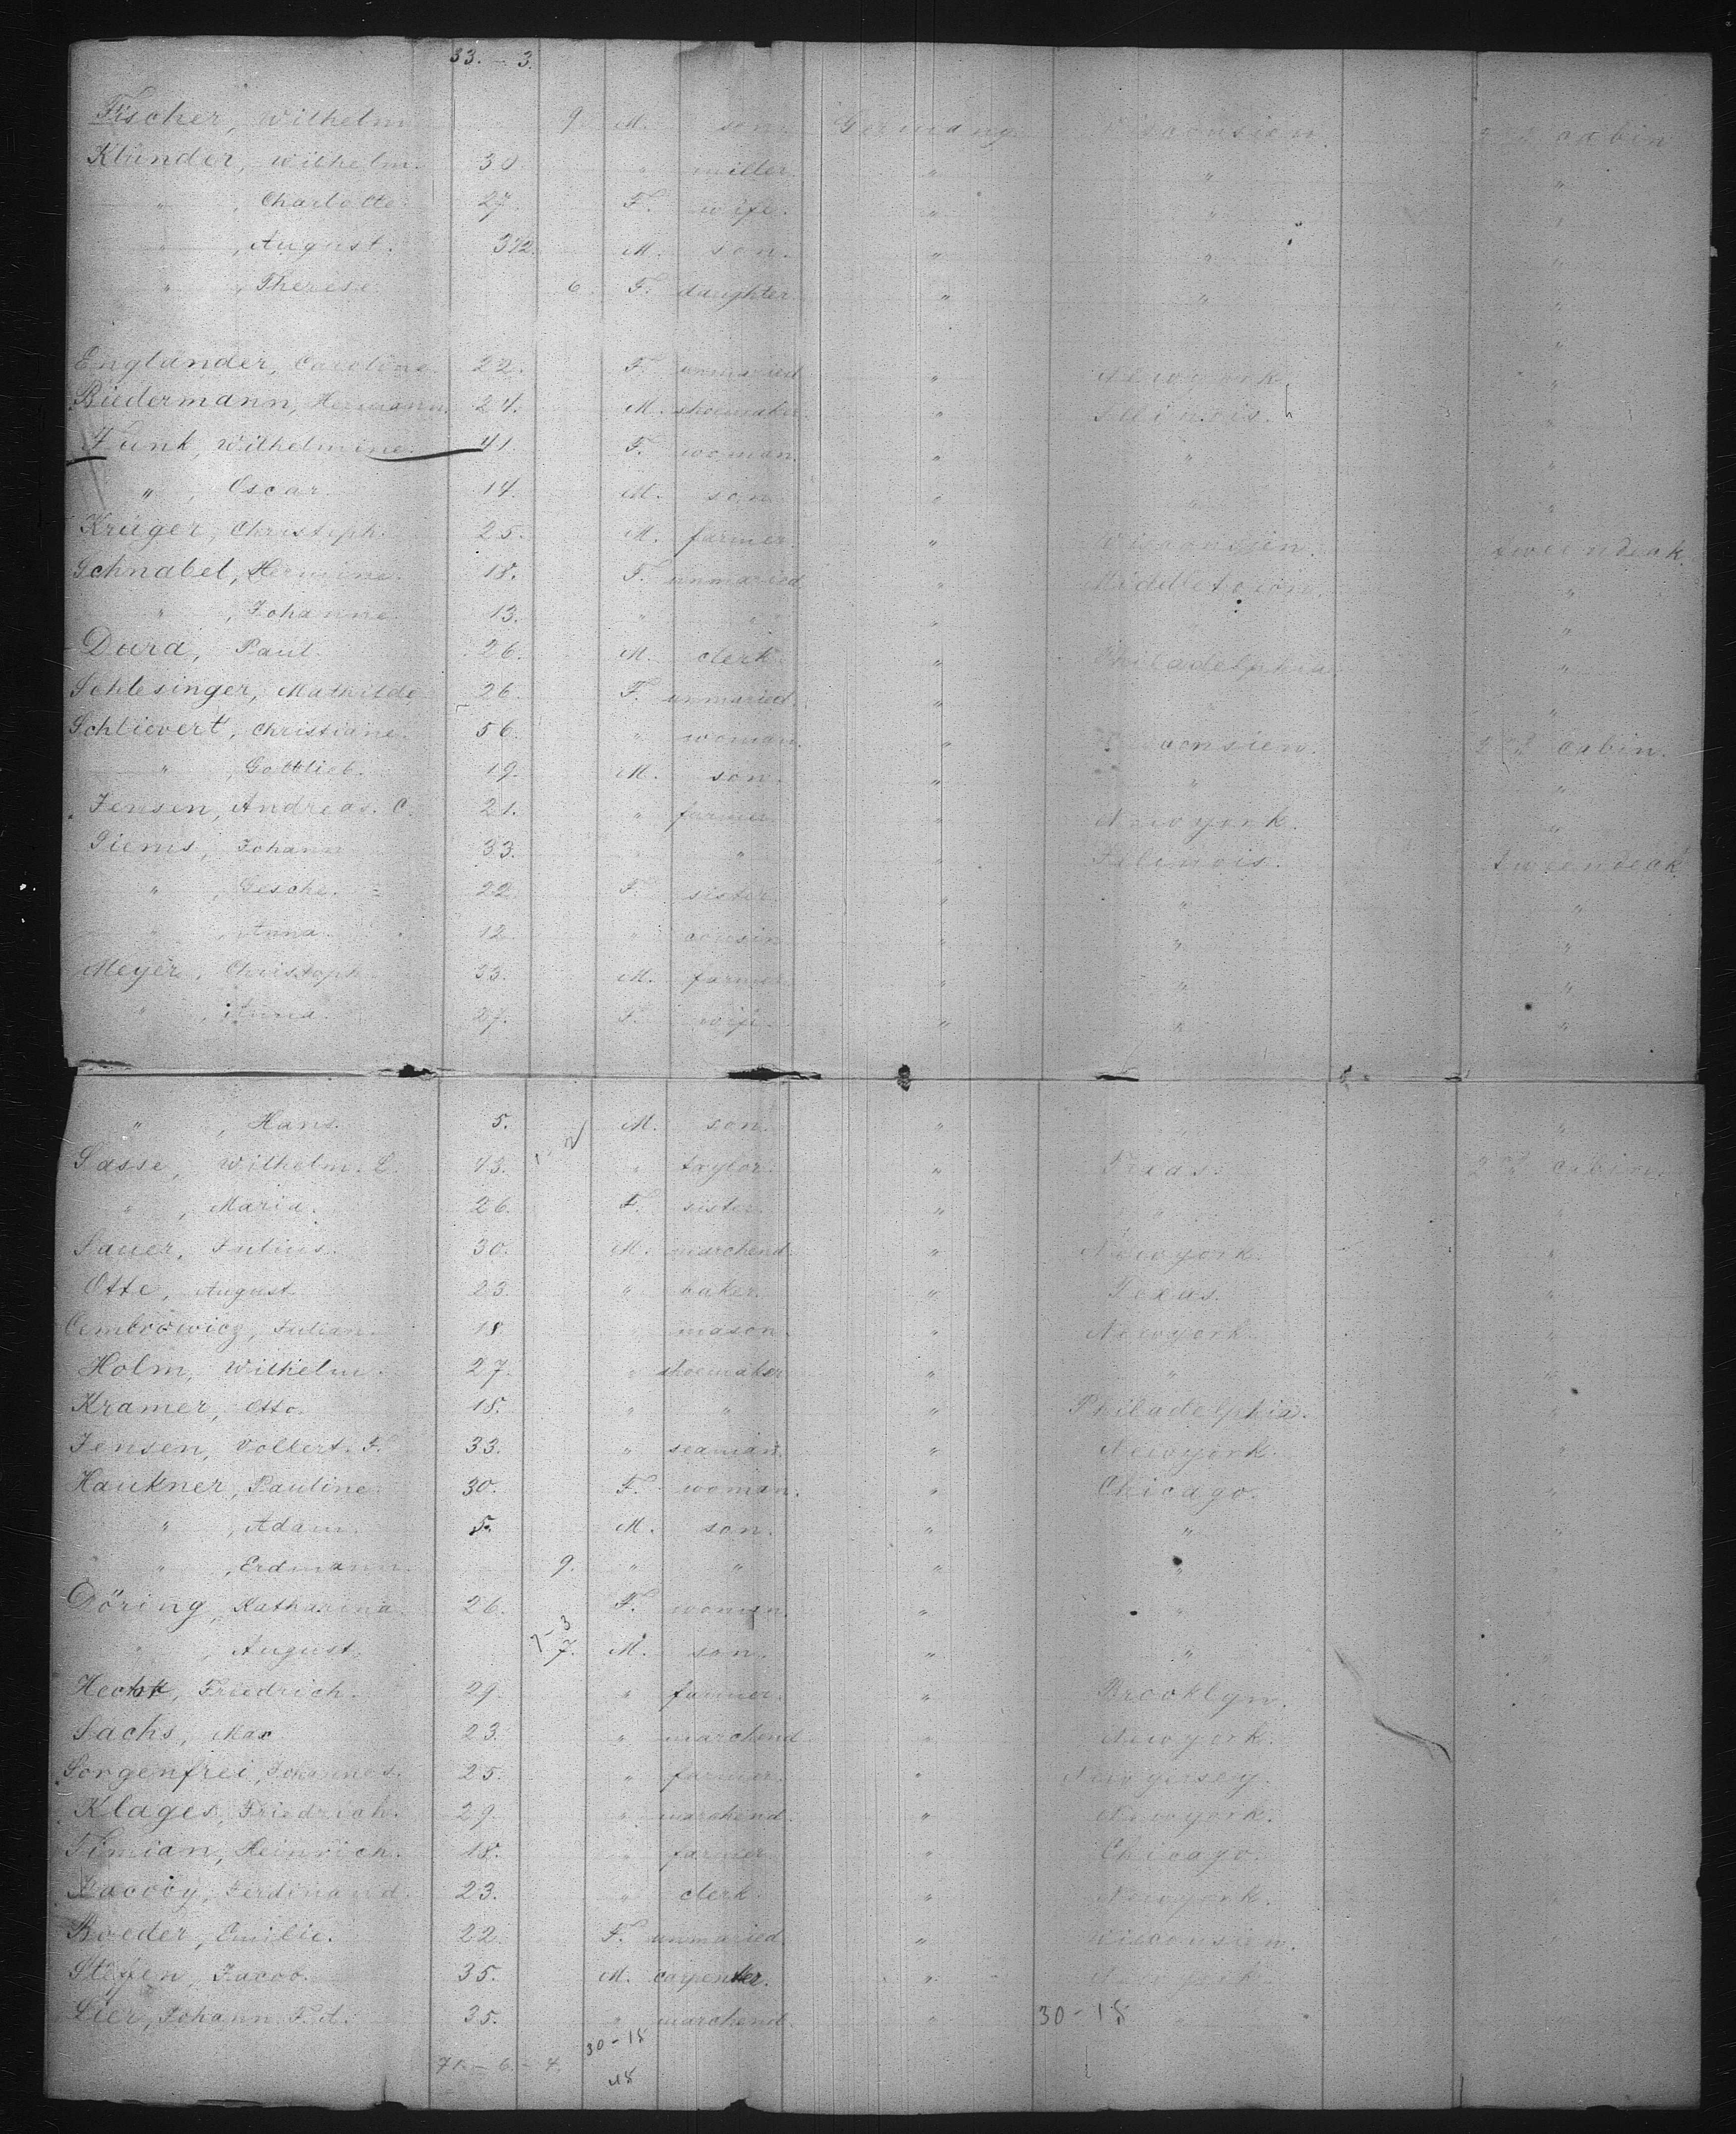 33. - 3.
Fischer, Wilhelm 9 M. son Germany Wisconsien. 2nd cabin
Klünder, Wilhelm. 30 " miller " " "
" , Charlotte. 27. F. wife. " " "
" , August. 3 1/2. M. son. " " "
" , Therese. 6. F. daughter " " "
"
Engländer, Caroline. 22. F. unmaried " Newyork "
Biedermann, Hermann. 24. M. shoemaker. " Illinois. "
Funk, Wilhelmine. 41 F. woman. " " "
" , Oscar. 14. M. son. " " "
Krüger, Christoph. 25. M. farmer. " Wisconsien. tweendeak.
Schnabel, Hermine. 18. F. unmaried " Middletown. "
" , Johanne. 13. " " " "
Dura, Paul. 26. M. clerk. " Philadelphia. "
Schlesinger, Mathilde 26. F. unmaried. " "
Schlievert, Christiane. 56. " woman. " Wisconsien. 2nd cabin.
" , Gottlieb. 19. M. son. " " "
Jensen, Andreas. C. 21. " farmer. " Newyork. "
Siems, Johann 33. " " " Illinois. tweendeak
" , Gesche. 22. F. sister. " " "
" , Anna. 12. " cousin " " "
Meyer, Christoph 33. M. farmer. " " "
" , Anna. 27. F. wife. " " "
" , Hans. 5. M. son. " "
Sasse, Wilhelm. L. 43. " taylor. " Texas. 2nd cabin.
" , Maria. 26. F. sister. " "
Sauer, Julius. 30. M. marchend. " Newyork. "
Otte, August. 23. " baker. " Texas. "
Cembrowicz, Julian. 18 mason. " Newyork. "
Holm, Wilhelm. 27. " shoemaker " " "
Kramer, Otto. 18. " " " Philadelphia. "
Jensen, Vollert. F. 33. " seaman. " Newyork. "
Haukner, Pauline 30. F. woman. " Chicago. "
" , Adam. 5. M. son. " " "
" , Erdmann. 9. " " " "
Döring, Katharina. 26. F. women. " "
" , August. 7. M. son. " " "
Hecht, Friedrich. 29. " farmer. " Brooklyn.
Sachs, Max 23. " marchend " Newyork.
Sorgenfrei, Johannes. 25. " farmer. " Newyersey.
Klages, Friedrich. 29. " marchend " Newyork.
Timian, Heinrich. 18. " farmer. " Chicago.
Jacoby, Ferdinand. 23. " clerk. " Newyork.
Boeder, Emilie. 22. F. unmaried " Wisconsien.
Steffen, Jacob. 35. M. carpenter. " Newyork.
Sier, Johann. F. A. 35. " marchend. " 30 - 18 "
30 - 18
71. - 6. - 4.
18